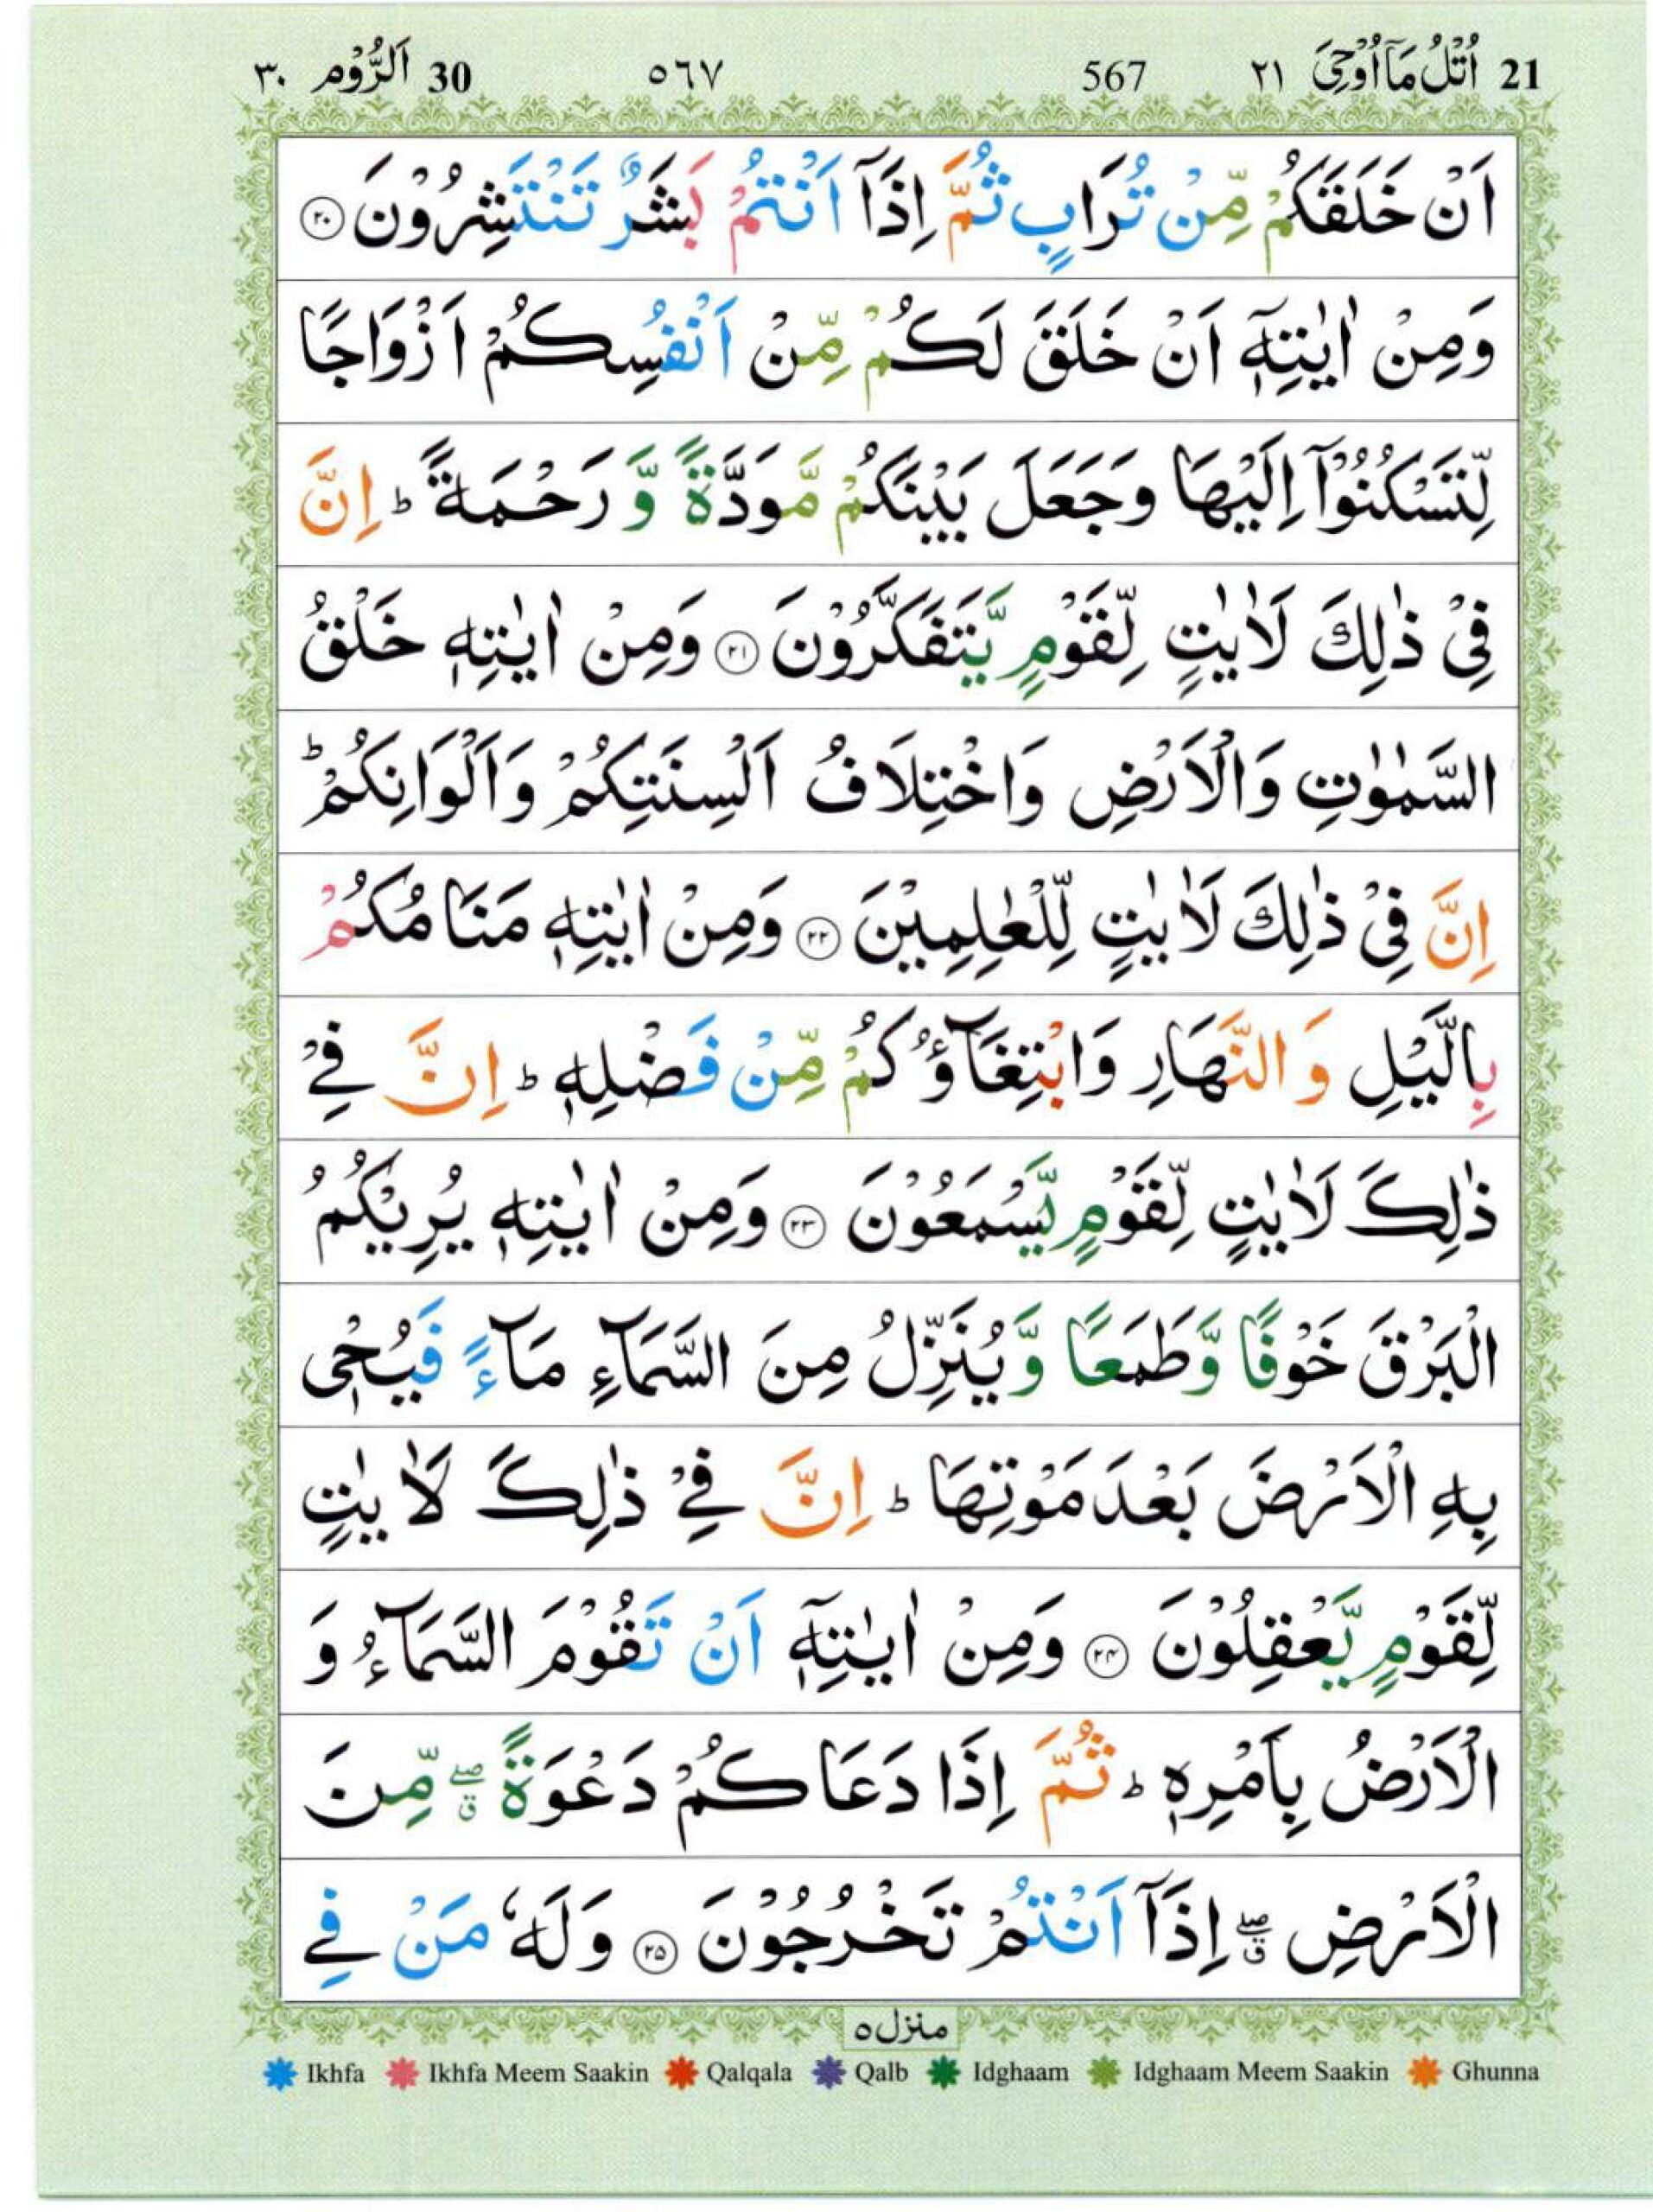 21 اُتْلُ مَاۤ اُوْحِیَ ٢١ 567 ٥٦٧ 30 اَلرُّوْم ٣٠
اَنْ خَلَقَكُمْ مِّنْ تُرَابٍ ثُمَّ اِذَاۤ اَنْتُمْ بَشَرٌ تَنْتَشِرُوْنَ ٢٠
وَمِنْ اٰیٰتِهٖۤ اَنْ خَلَقَ لَكُمْ مِّنْ اَنْفُسِكُمْ اَزْوَاجًا
لِّتَسْكُنُوْۤا اِلَیْهَا وَجَعَلَ بَیْنَكُمْ مَّوَدَّةً وَّ رَحْمَةً ؕ اِنَّ
فِیْ ذٰلِكَ لَاٰیٰتٍ لِّقَوْمٍ یَّتَفَكَّرُوْنَ ٢١ وَمِنْ اٰیٰتِهٖ خَلْقُ
السَّمٰوٰتِ وَالْاَرْضِ وَاخْتِلَافُ اَلْسِنَتِكُمْ وَاَلْوَانِكُمْ ؕ
اِنَّ فِیْ ذٰلِكَ لَاٰیٰتٍ لِّلْعٰلِمِیْنَ ٢٢ وَمِنْ اٰیٰتِهٖ مَنَامُكُمْ
بِالَّیْلِ وَالنَّهَارِ وَابْتِغَآؤُكُمْ مِّنْ فَضْلِهٖ ؕ اِنَّ فِیْ
ذٰلِكَ لَاٰیٰتٍ لِّقَوْمٍ یَّسْمَعُوْنَ ٢٣ وَمِنْ اٰیٰتِهٖ یُرِیْكُمُ
الْبَرْقَ خَوْفًا وَّطَمَعًا وَّیُنَزِّلُ مِنَ السَّمَآءِ مَآءً فَیُحْیٖ
بِهِ الْاَرْضَ بَعْدَ مَوْتِهَا ؕ اِنَّ فِیْ ذٰلِكَ لَاٰیٰتٍ
لِّقَوْمٍ یَّعْقِلُوْنَ ٢٤ وَمِنْ اٰیٰتِهٖۤ اَنْ تَقُوْمَ السَّمَآءُ وَ
الْاَرْضُ بِاَمْرِهٖ ؕ ثُمَّ اِذَا دَعَاكُمْ دَعْوَةً ۖۗ مِّنَ
الْاَرْضِ ۖۗ اِذَاۤ اَنْتُمْ تَخْرُجُوْنَ ٢٥ وَلَهٗ مَنْ فِی
منزل ٥
Ikhfa Ikhfa Meem Saakin Qalqala Qalb Idghaam Idghaam Meem Saakin Ghunna